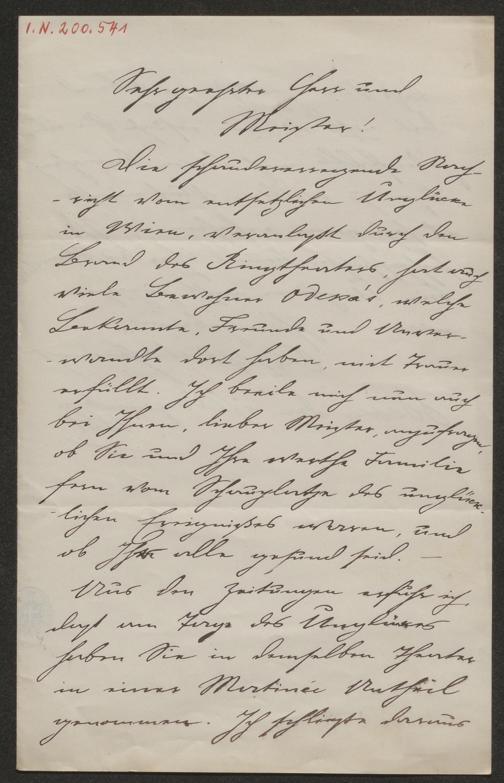 I.N. 200.541
Sehr geehrter Herr und
Meister!
Die schaudererregende Nach-
-richt vom entsetzlichen Unglücke
in Wien, veranlaßt durch den
Brand des Ringtheaters, hat auch
viele Bewohner Odessa's, welche
Bekannte, Freunde und Anver-
-wandte dort haben, mit Trauer
erfüllt. Ich beeile mich nun auch
bei Ihnen, lieber Meister, anzufragen,
ob Sie und Ihre werthe Familie
fern vom Schauplatze des unglück-
-lichen Ereignißes waren, und
ob Ihr alle gesund seid. —
Aus den Zeitungen erfuhr ich,
daß am Tage des Unglückes
haben Sie in demselben Theater
in einer Matinée Antheil
genommen. Ich schließe daraus